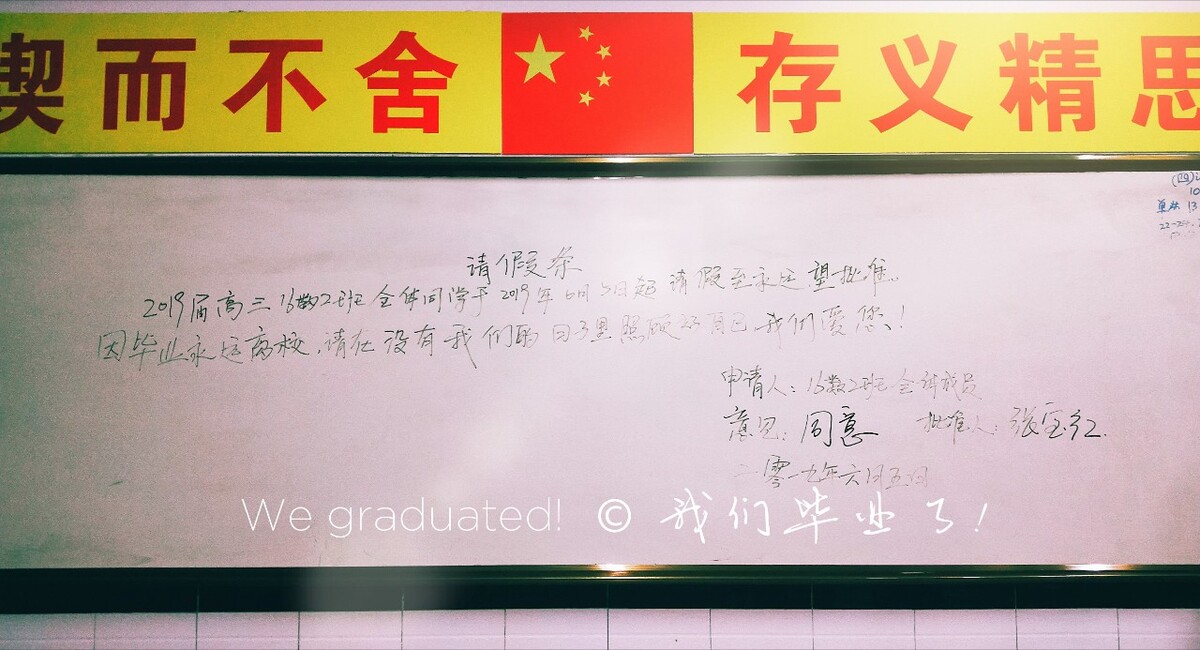 锲而不舍 存义精思
请假条
2019届高三16数2班全体同学于2019年6月5日起请假至永远望批准。
因毕业永远离校,请在没有我们的日子里照顾好自己,我们爱您!
申请人:16数2班全体成员
意见:同意 批准人:张宝红.
二零一九年六月五日
We graduated! © 我们毕业了!